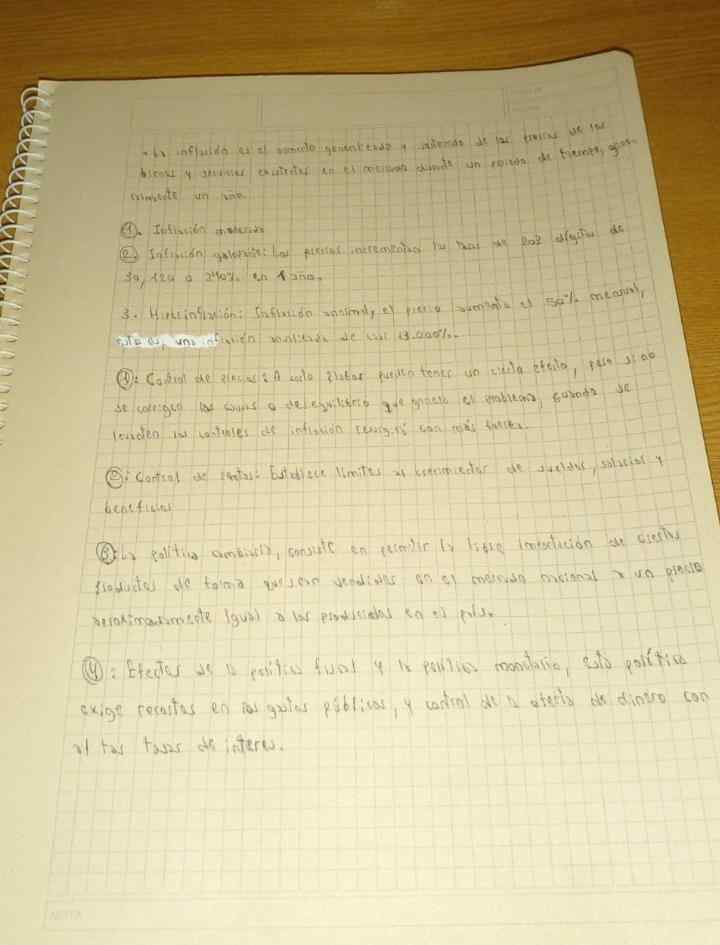 - La inflación es el aumento generalizado y sostenido de los precios de los
bienes y servicios existentes en el mercado durante un periodo de tiempo,
un año.
1. Inflación moderada
2. Inflación galopante: Los precios incrementan la tasa de 2 o 3 dígitos de
30, 120 o 240% en 1 año.
3. Hiperinflación: Inflación anormal, el precio aumenta el 50% mensual,
esto es, una inflación anualizada de casi 13.000%.
1: Control de precios: A corto plazo pueden tener un cierto efecto, pero si no
se corrigen las causas o desequilibrio que generó el problema, cuando se
levanten los controles de inflación resurgirá con más fuerza.
2: Control de rentas: Establece límites al crecimiento de sueldos, salarios y
beneficios
3: La política cambiaria, consiste en permitir la libre importación de ciertos
productos de forma que sean vendidos en el mercado nacional a un precio
aproximadamente igual a los producidos en el país.
4: Efectos de la política fiscal y la política monetaria, esta política
exige recortes en los gastos públicos, y control de la oferta de dinero con
tasas de interes.
NORMA